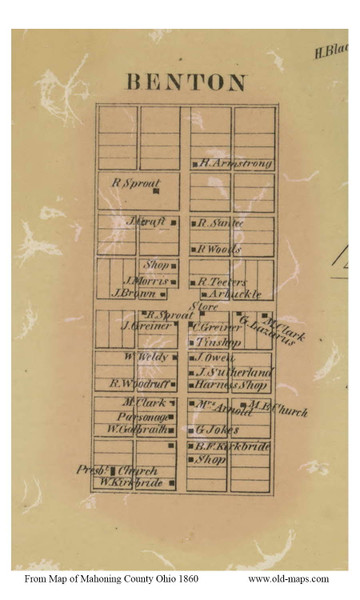 H. Blac
BENTON
H. Armstrong
R. Sproat
J. Graft
R. Santee
R. Woods
Shop
J. Morris
R. Teeters
J. Brown
Arbuckle
Store
R. Sproat
M. Clark
G. Lazarus
J. Greiner
C. Greiner
Tinshop
W. Weldy
J. Owen
J. Sutherland
R. Woodruff
Harness Shop
M. Clark
Mrs Arnold
M. E. Church
Parsonage
W. Galbraith
G. Jokes
B. F. Kirkbride
Shop
Presbt. Church
W. Kirkbride
From Map of Mahoning County Ohio 1860
www.old-maps.com